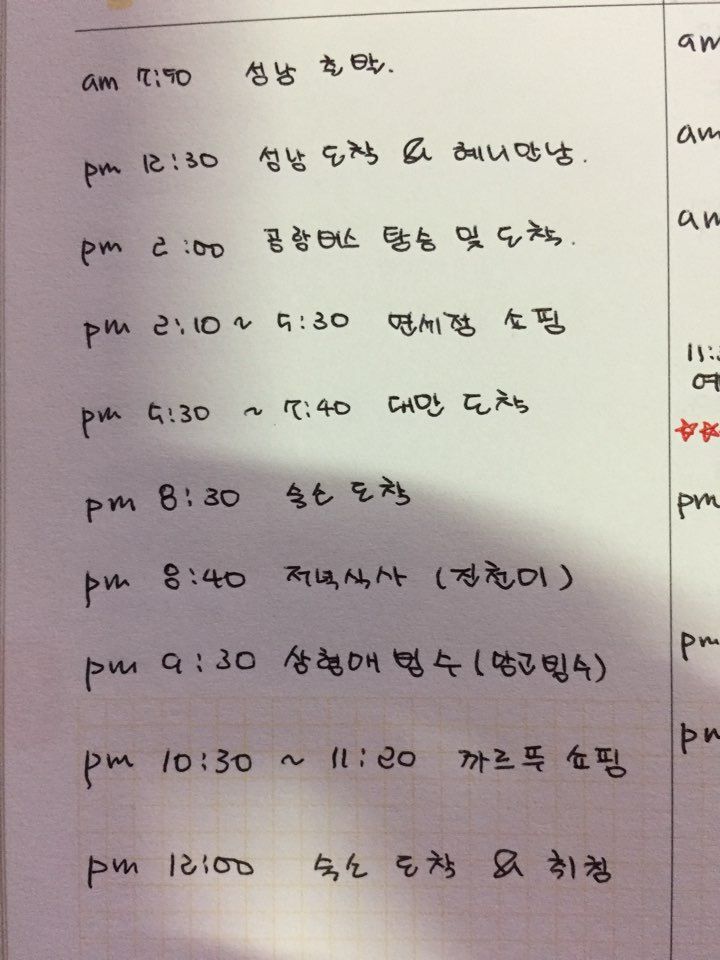 am 7:50 성남 출발.
pm 12:30 성남 도착 & 혜니만남.
pm 2:00 공항버스 탑승 및 도착.
pm 2:10 ~ 5:30 면세점 쇼핑
pm 5:30 ~ 7:40 대만 도착
pm 8:30 숙소 도착
pm 8:40 저녁식사 (진천미)
pm 9:30 삼형애 빙수 (망고빙수)
pm 10:30 ~ 11:20 까르푸 쇼핑
pm 12:00 숙소 도착 & 취침
am
am
am
11:
예
pm
pm
pm